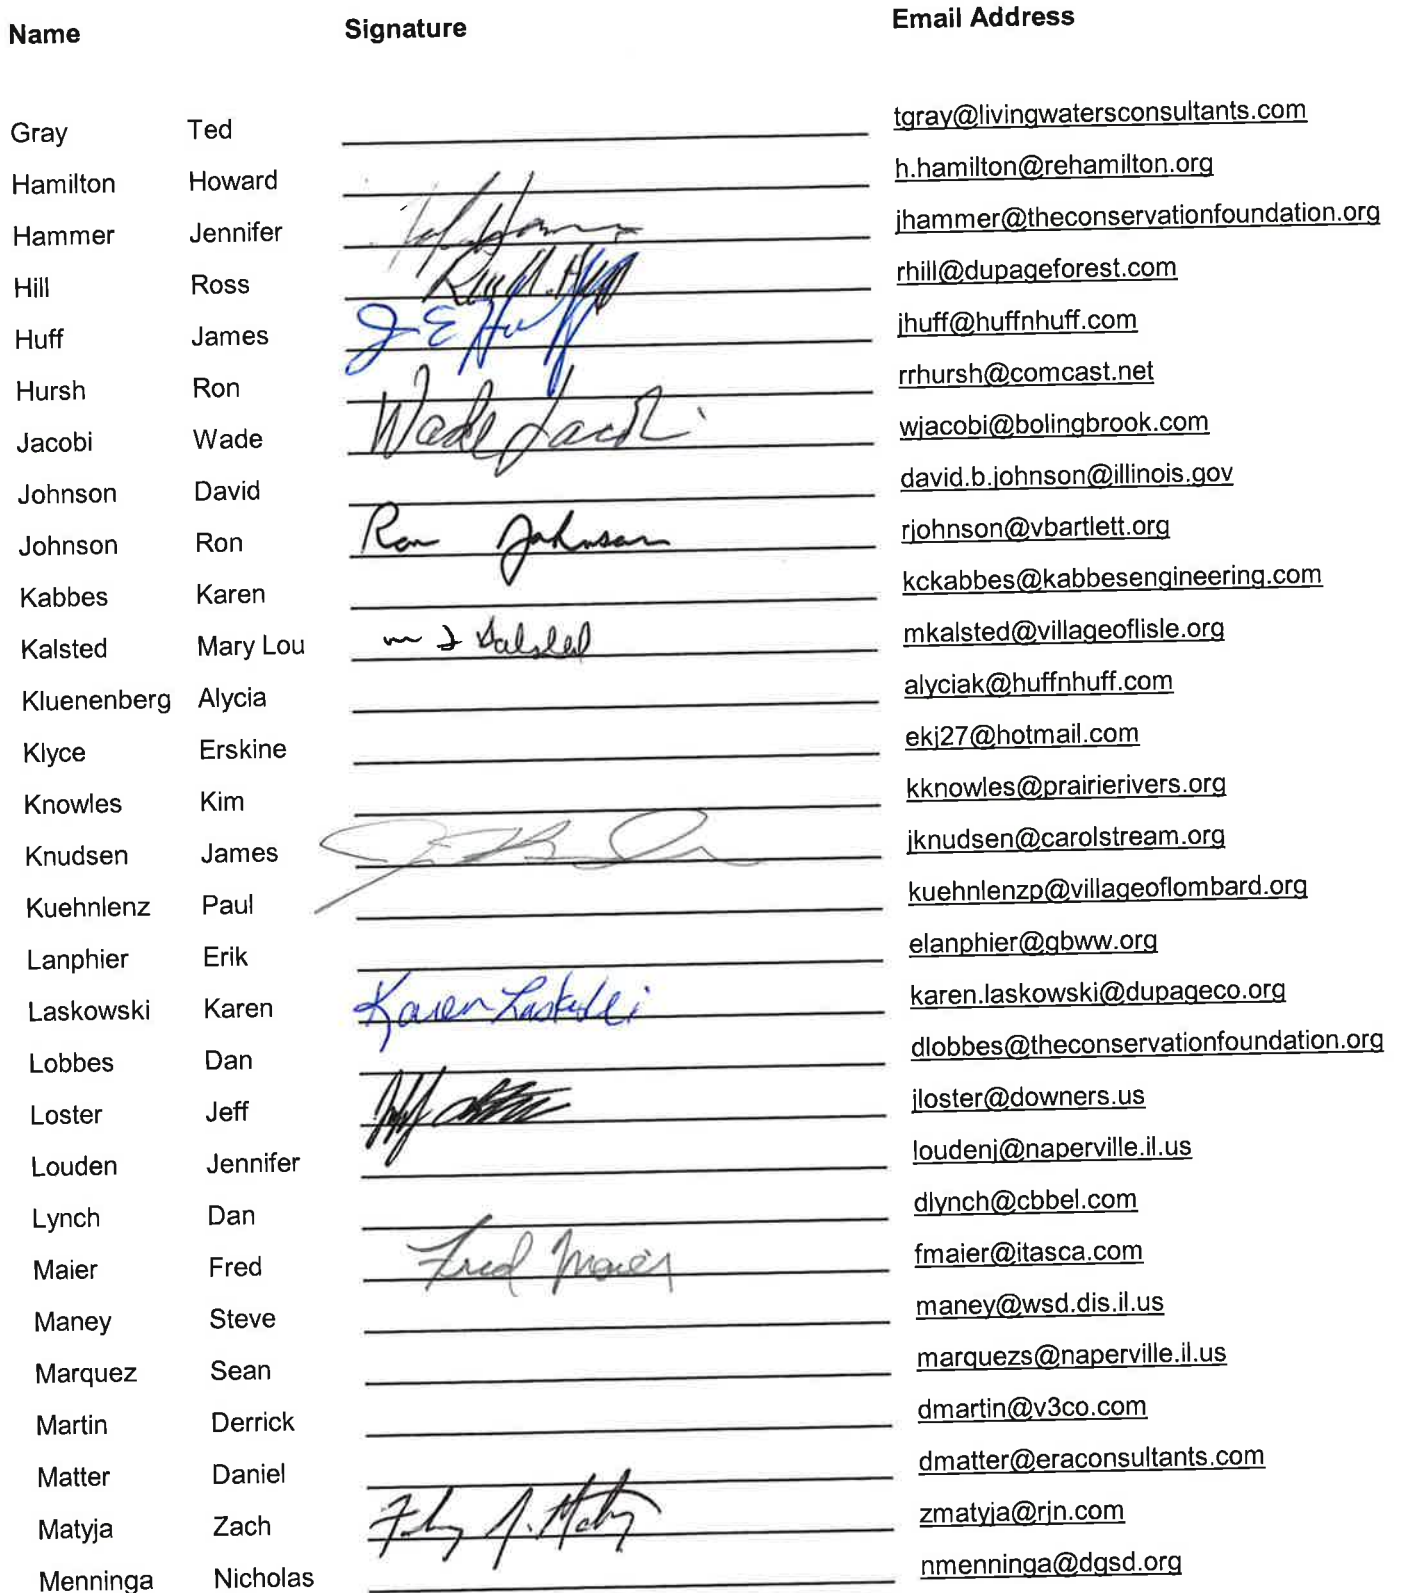 Name Signature Email Address
Gray Ted tgray@livingwatersconsultants.com
Hamilton Howard h.hamilton@rehamilton.org
Hammer Jennifer jhammer@theconservationfoundation.org
Hill Ross rhill@dupageforest.com
Huff James J E Huff jhuff@huffnhuff.com
Hursh Ron rrhursh@comcast.net
Jacobi Wade Wade Jacobi wjacobi@bolingbrook.com
Johnson David david.b.johnson@illinois.gov
Johnson Ron Ron Johnson rjohnson@vbartlett.org
Kabbes Karen kckabbes@kabbesengineering.com
Kalsted Mary Lou mkalsted@villageoflisle.org
Kluenenberg Alycia alyciak@huffnhuff.com
Klyce Erskine ekj27@hotmail.com
Knowles Kim kknowles@prairierivers.org
Knudsen James jknudsen@carolstream.org
Kuehnlenz Paul kuehnlenzp@villageoflombard.org
Lanphier Erik elanphier@gbww.org
Laskowski Karen Karen Laskowski karen.laskowski@dupageco.org
Lobbes Dan dlobbes@theconservationfoundation.org
Loster Jeff jloster@downers.us
Louden Jennifer loudenj@naperville.il.us
Lynch Dan dlynch@cbbel.com
Maier Fred Fred Maier fmaier@itasca.com
Maney Steve maney@wsd.dis.il.us
Marquez Sean marquezs@naperville.il.us
Martin Derrick dmartin@v3co.com
Matter Daniel dmatter@eraconsultants.com
Matyja Zach zmatyja@rjn.com
Menninga Nicholas nmenninga@dgsd.org